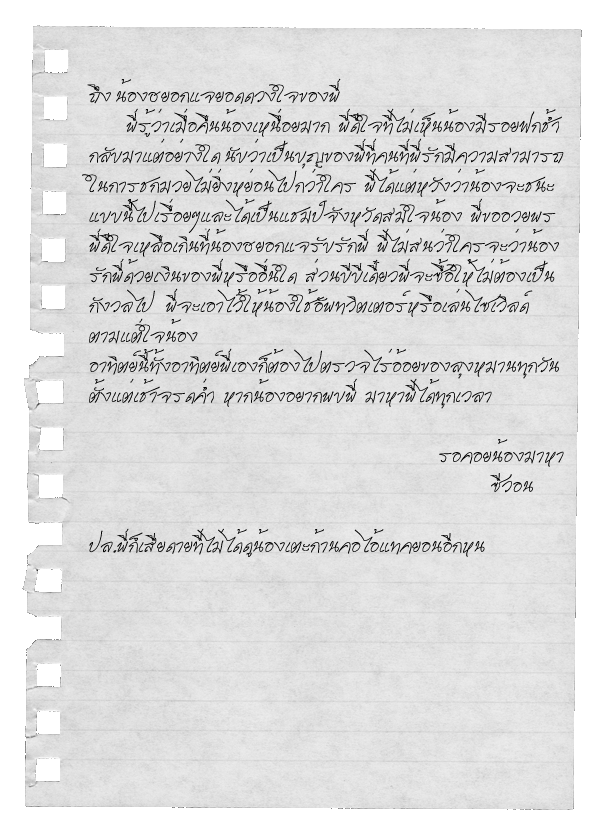 ถึง น้องชยอกแจยอดดวงใจของพี่
พี่รู้ว่าเมื่อคืนน้องเหนื่อยมาก พี่ดีใจที่ไม่เห็นน้องมีรอยฟกช้ำ
กลับมาแต่อย่างใด นับว่าเป็นบุญของพี่ที่คนที่พี่รักมีความสามารถ
ในการชกมวยไม่ยิ่งหย่อนไปกว่าใคร พี่ได้แต่หวังว่าน้องจะชนะ
แบบนี้ไปเรื่อยๆและได้เป็นแชมป์จังหวัดสมใจน้อง พี่ขออวยพร
พี่ดีใจเหลือเกินที่น้องชยอกแจรับรักพี่ พี่ไม่สนว่าใครจะว่าน้อง
รักพี่ด้วยเงินของพี่หรืออื่นใด ส่วนบีบีเดี๋ยวพี่จะซื้อให้ไม่ต้องเป็น
กังวลไป พี่จะเอาไว้ให้น้องใช้อัพทวิตเตอร์หรือเล่นไซเวิลด์
ตามแต่ใจน้อง
อาทิตย์นี้ทั้งอาทิตย์พี่เองก็ต้องไปตรวจไร่อ้อยของลุงหมานทุกวัน
ตั้งแต่เช้าจรดค่ำ หากน้องอยากพบพี่ มาหาพี่ได้ทุกเวลา
รอคอยน้องมาหา
ชีวอน
ปล.พี่ก็เสียดายที่ไม่ได้ดูน้องเตะก้านคอไอ้แทคยอนอีกหน